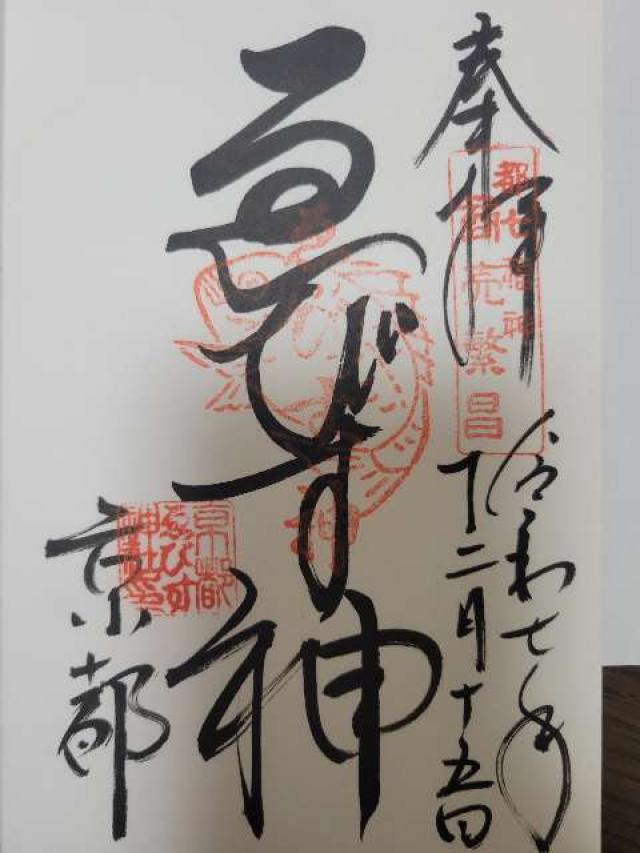 奉拝
都七福神
商売繁昌
令和七年
十二月十五日
ゑびす神
京都
京都
ゑびす
神社印